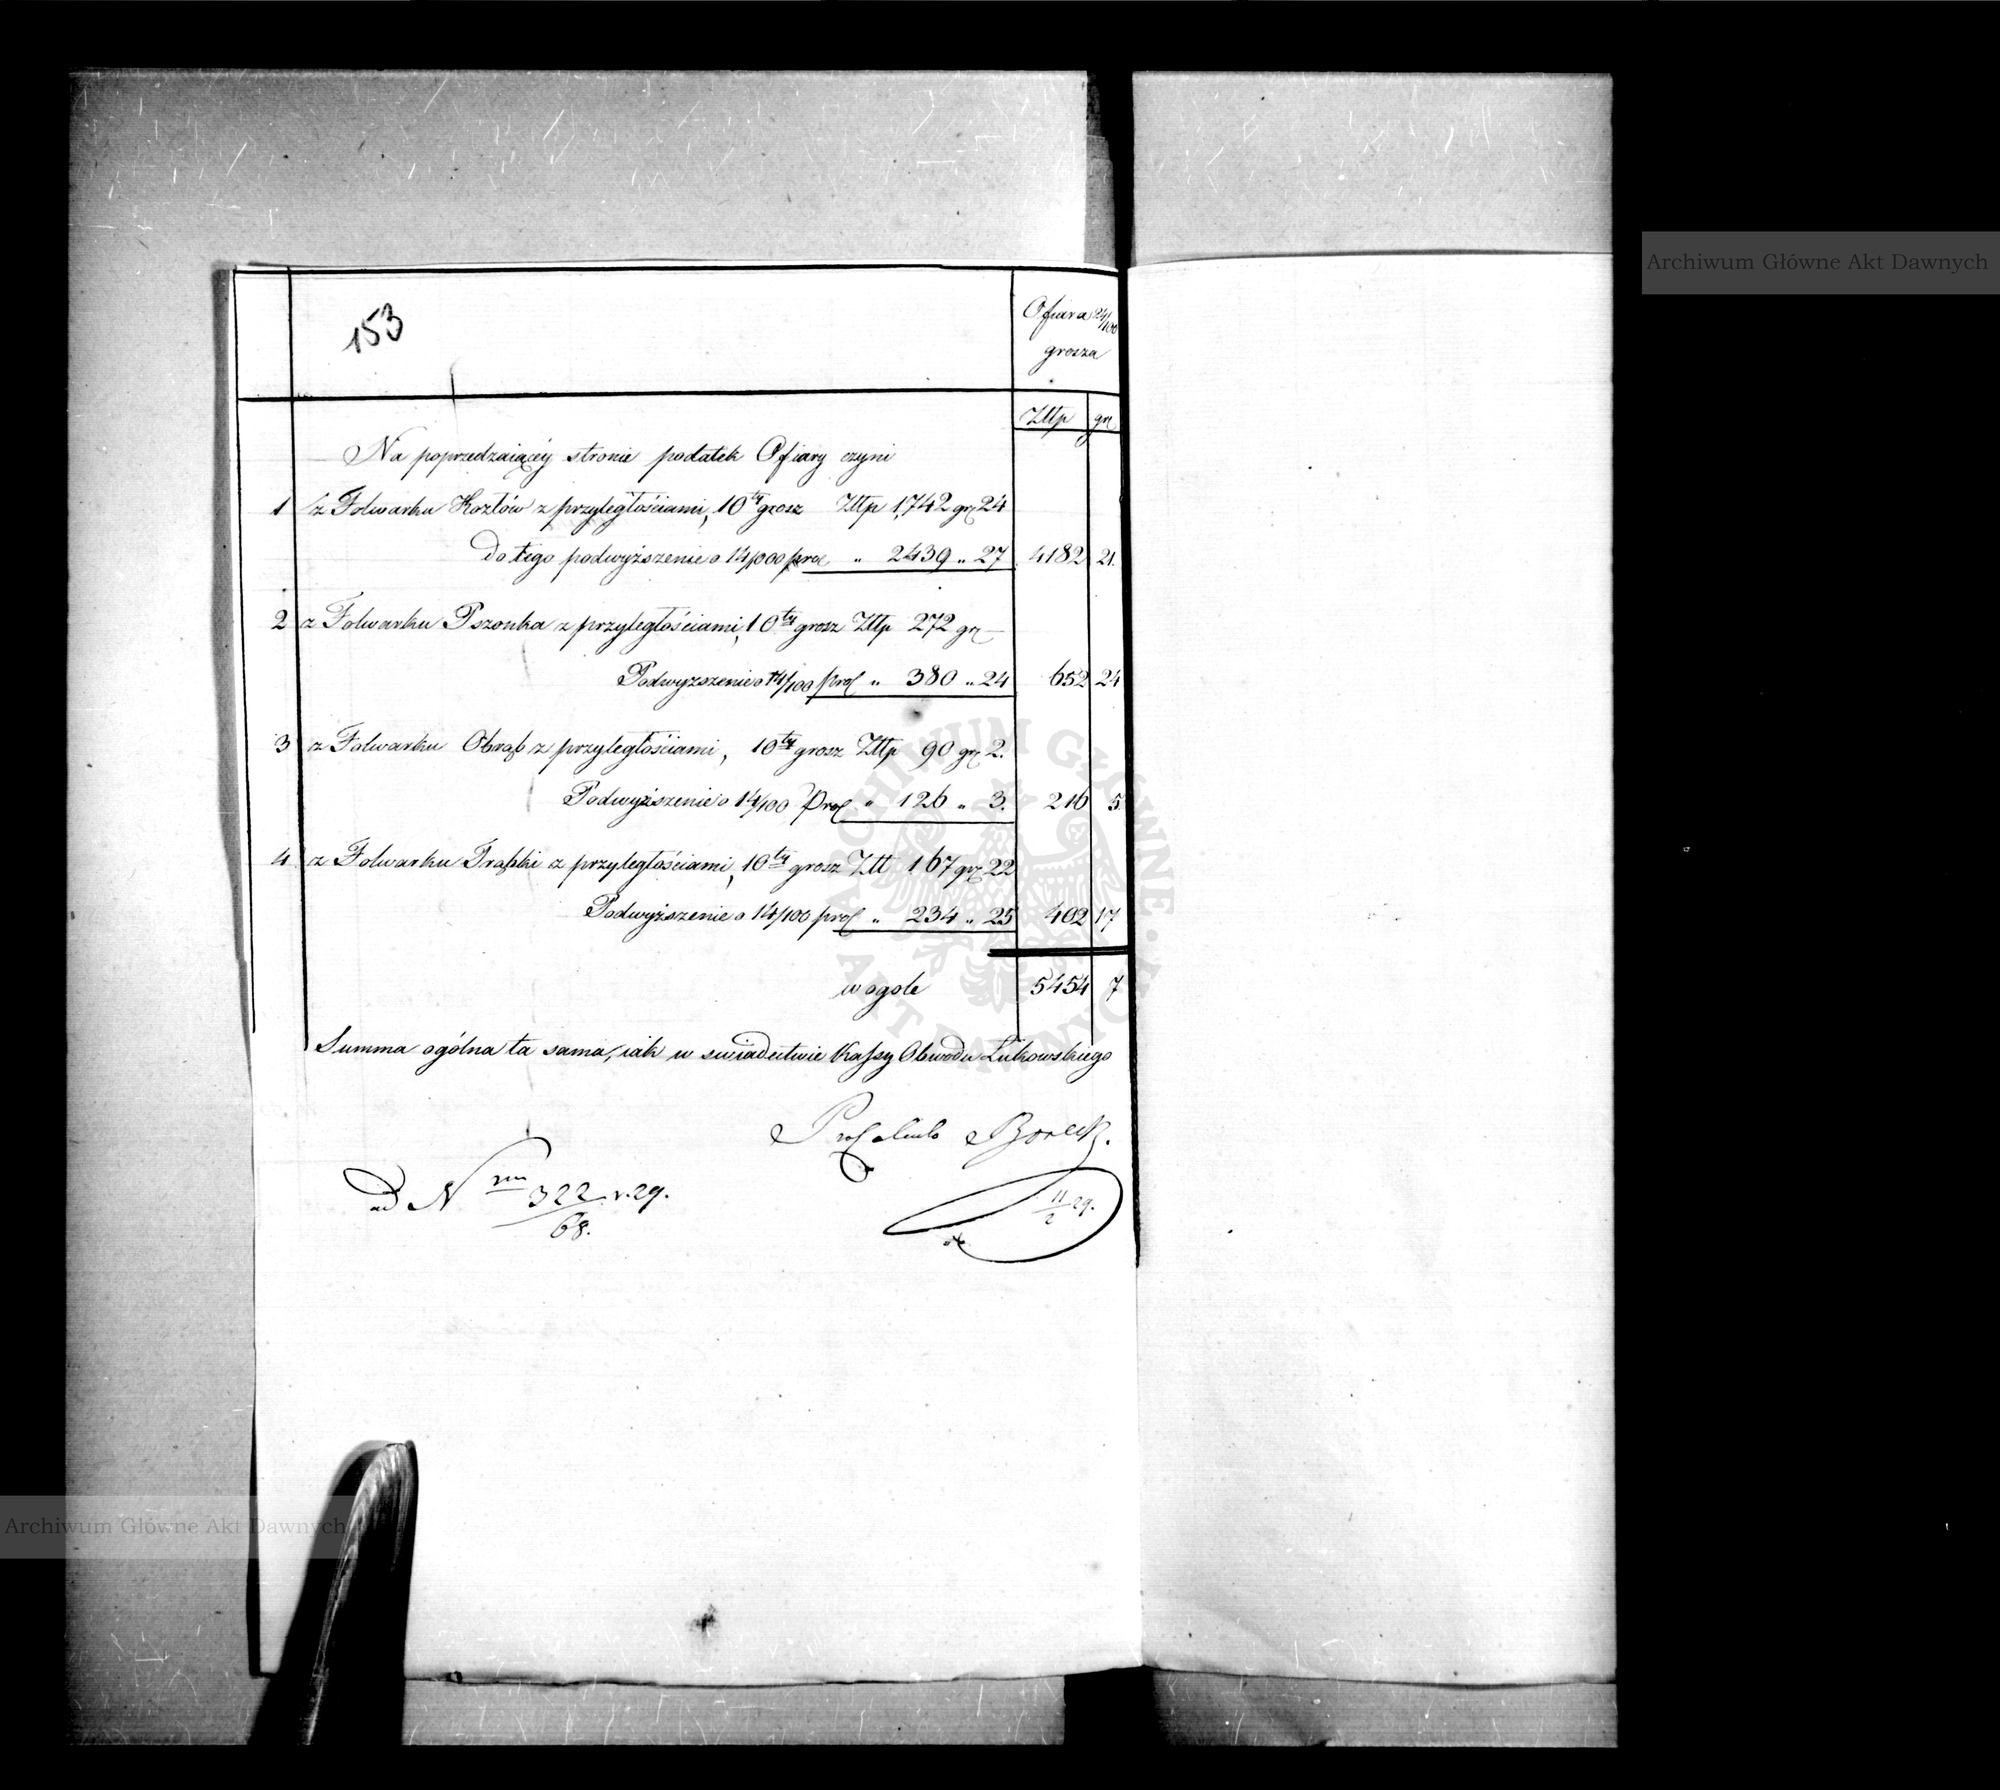 Archiwum Główne Akt Dawnych
153
Ofiara 24/100
grosza
Złtp gr
Na poprzedzaiącey stronie podatek Ofiary czyni
1 z Folwarku Kozłów z przyległościami, 10ty grosz Złtp 1,742 gr 24
do tego podwyższenie o 14/000 " 2439 " 27 4182 21.
2 z Folwarku Pszonka z przyległościami, 10ty grosz Złtp 272 gr —
Podwyższenie o 14/100 " 380 " 24 652 24
3 z Folwarku Obrąb z przyległościami, 10ty grosz Złtp 90 gr 2.
Podwyższenie o 14/100 " 126 " 3. 216 5
4 z Folwarku Trąbki z przyległościami, 10ty grosz Złt 167 gr 22
Podwyższenie o 14/100 " 234 " 25 402 17
wogole 5454 7
Summa ogólna ta sama, iak w swiadectwie Kassy Obwodu Łukowskiego
ad Nrm 322/68. r. 29.
11/2 29.
ARCHIWUM GŁÓWNE AKT DAWNYCH
Archiwum Główne Akt Dawnych